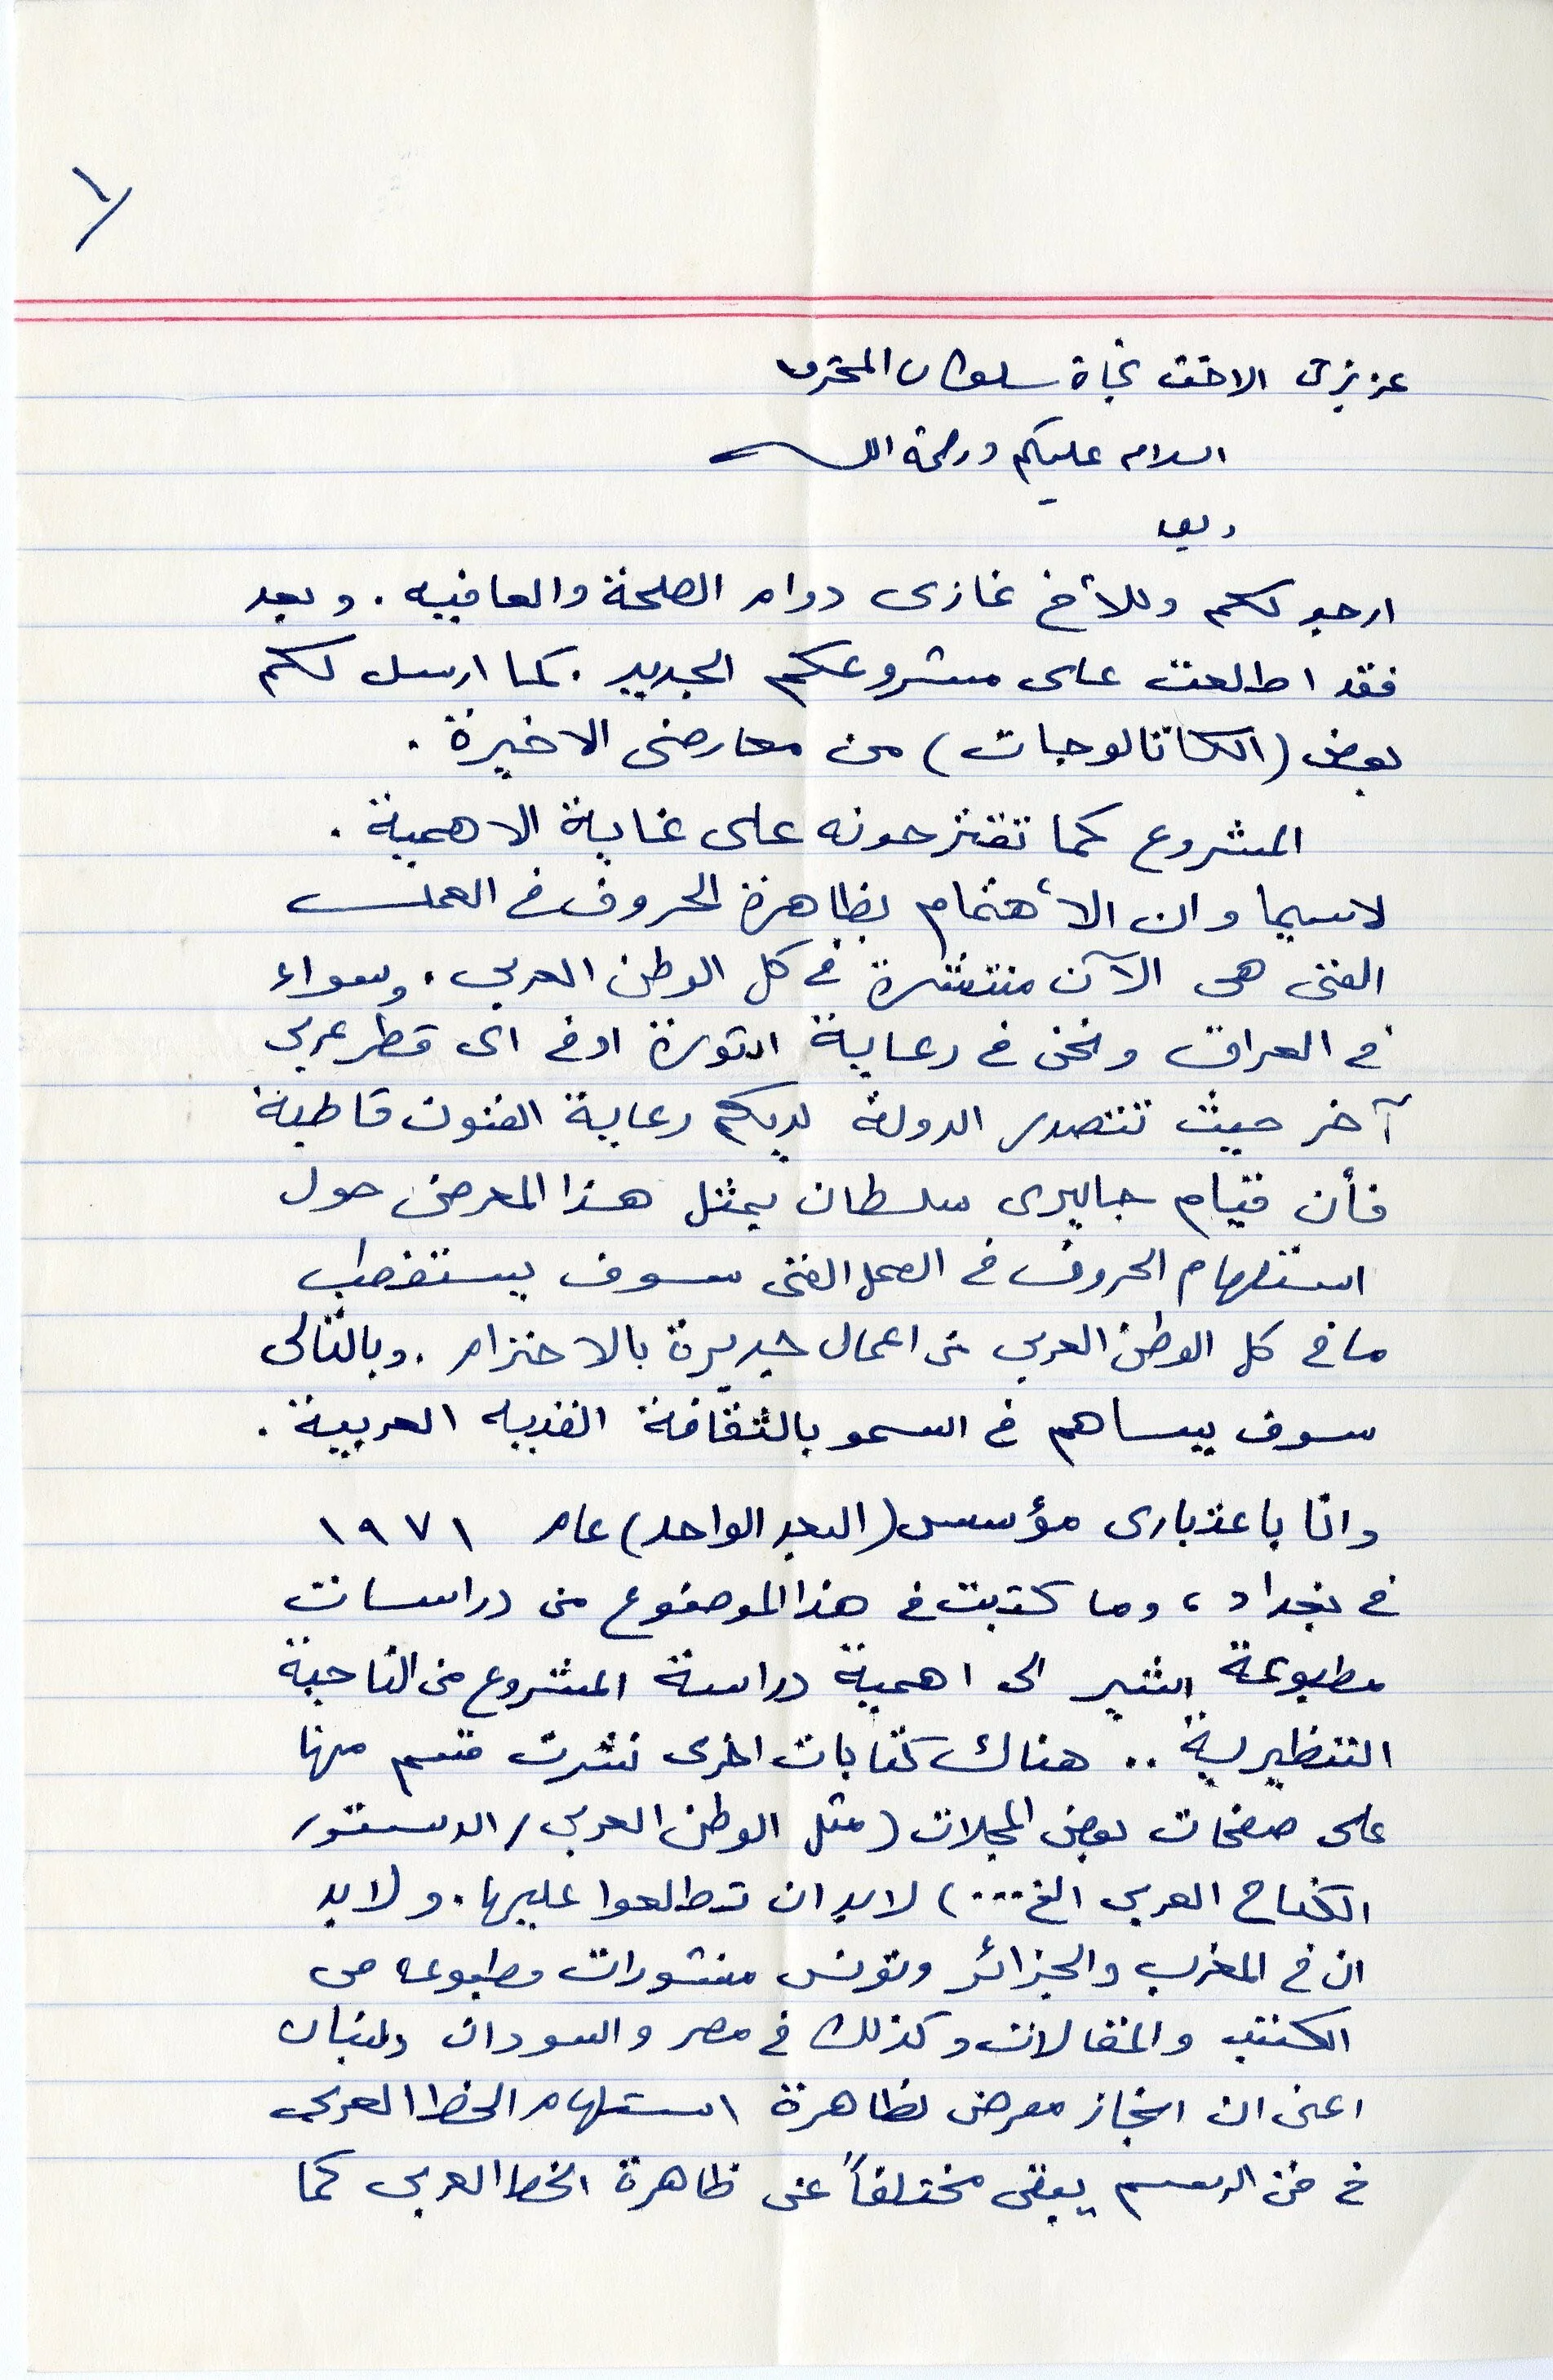 ١/
عزيزتي الاخت نجاة سلطان المحترمة
السلام عليكم ورحمة الله
وبعد
ارجو لكم وللأخ غازى دوام الصحة والعافيه . وبعد
فقد اطلعت على مشروعكم الجديد . كما ارسل لكم
بعض (الكاتالوجات) من معارضى الاخيرة .
المشروع كما تقترحونه على غاية الاهمية .
لاسيما وان الأهتمام بظاهرة الحروف في العمل
الفنى هى الآن منتشرة في كل الوطن العربي . وسواء
في العراق ونحن في رعاية الثورة او في اى قطر عربي
آخر حيث تتصدر الدولة لديكم رعاية الفنون قاطبة
فأن قيام جاليرى سلطان بمثل هذا المعرض حول
استلهام الحروف في العمل الفنى سوف يستقطب
ما في كل الوطن العربي من اعمال جديرة بالاحترام . وبالتالى
سوف يساهم في السمو بالثقافة الفنيه العربية .
وانا باعتبارى مؤسس (البعد الواحد) عام ١٩٧١
في بغداد ، وما كتبت في هذا الموضوع من دراسات
مطبوعة اشير الى اهمية دراسة المشروع من الناحية
التنظيرية .. هناك كتابات اخرى نشرت قسم منها
على صفحات بعض المجلات (مثل الوطن العربي / الدستور /
الكفاح العربي الخ ...) لابد ان تطلعوا عليها . ولابد
ان في المغرب والجزائر وتونس منشورات مطبوعه من
الكتب والمقالات وكذلك في مصر والسودان ولبنان
اعنى ان انجاز معرض لظاهرة استلهام الخط العربي
في فن الرسم يبقى مختلفاً عن ظاهرة الخط العربي كما